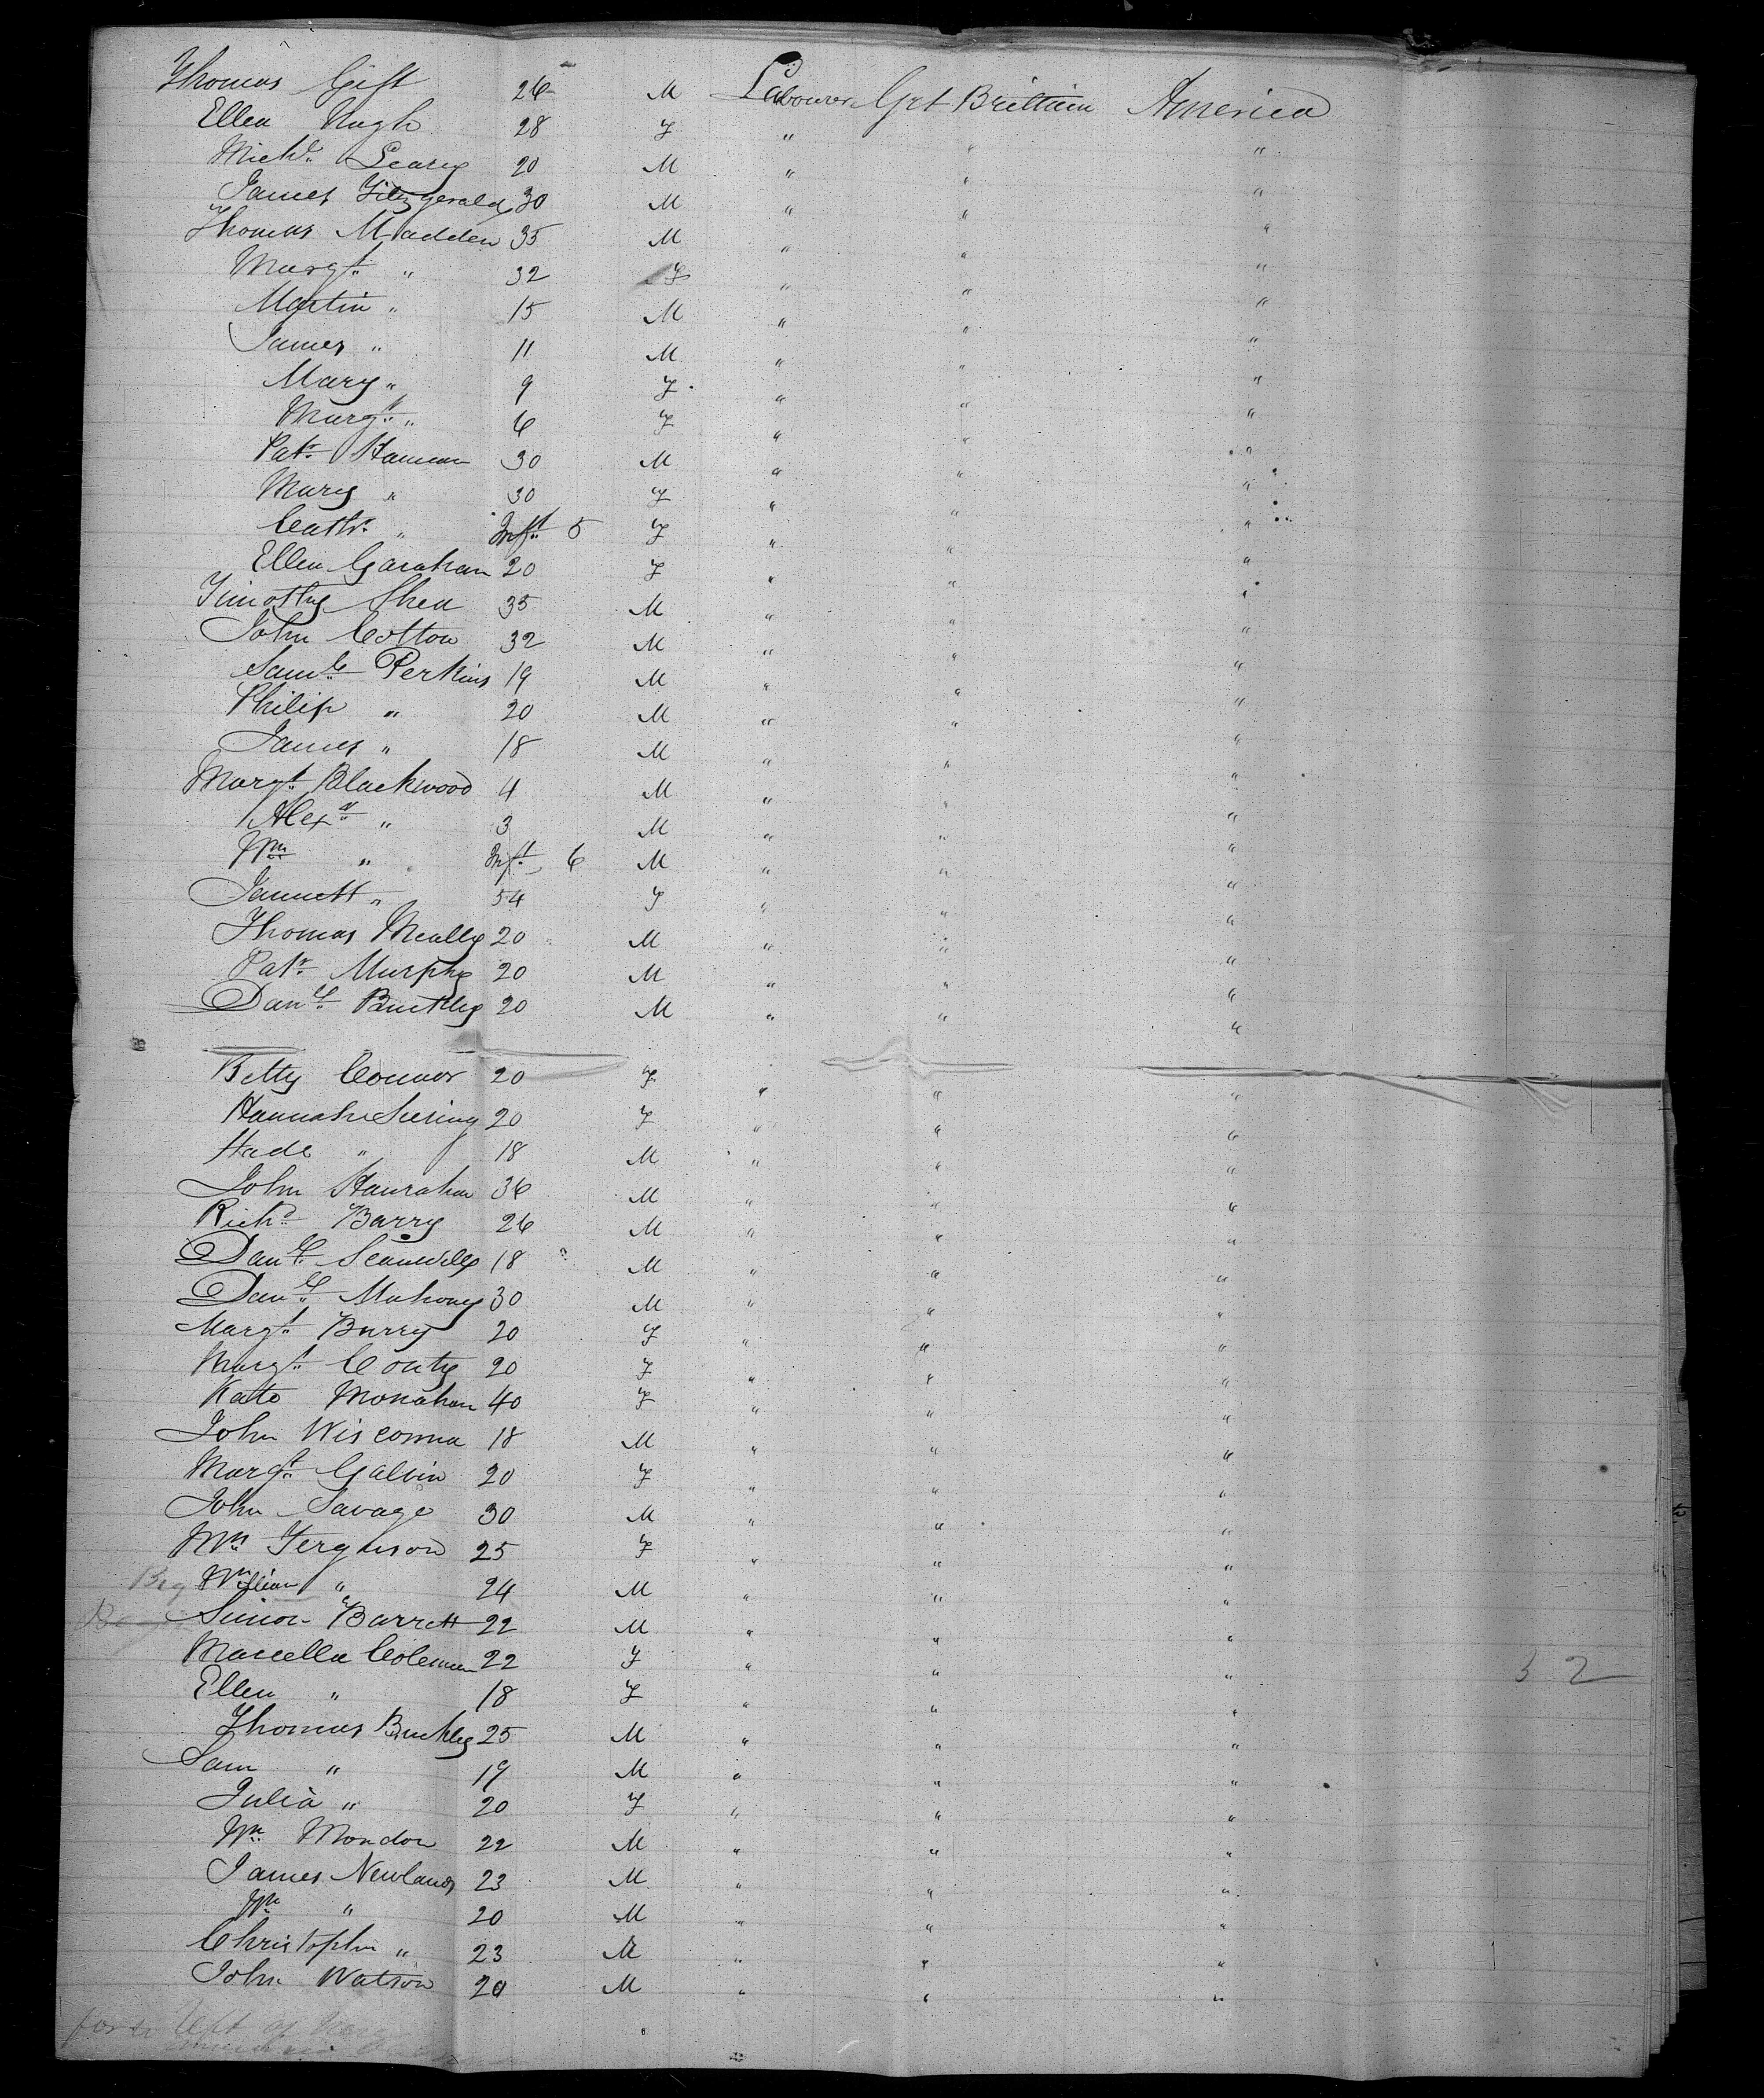 Thomas Gift 26 M Labourer Grt Brittian America
Ellen Hugh 28 F " " "
Michl. Leary 20 M " " "
James Fitzgerald 30 M " " "
Thomas Madden 35 M " " "
Margt. " 32 F " " "
Martin " 15 M " " "
James " 11 M " " "
Mary " 9 F " " "
Margt. " 6 F " " "
Patk. Hannan 30 M " " "
Mary " 30 F " " "
Cathr. " Inft. 5 F " " "
Ellen Garahan 20 F " " "
Timothy Shea 35 M " " "
John Cotton 32 M " " "
Saml. Perkins 19 M " " "
Philip " 20 M " " "
James " 18 M " " "
Margt. Blackwood 4 M " " "
Alexr. " 3 M " " "
Wm " Inft. 6 M " " "
Jannett " 54 F " " "
Thomas Meally 20 M " " "
Patk. Murphy 20 M " " "
Danl. Buckley 20 M " " "
Betty Connor 20 F " " "
Hannah 20 F " " "
Hade " 18 M " " "
John Hanrahan 36 M " " "
Richd. Barry 26 M " " "
Danl. 18 M " " "
Danl. Mahony 30 M " " "
Margt. Barry 20 F " " "
Margt. Conty 20 F " " "
Kate Monahan 40 F " " "
John Wisconna 18 M " " "
Margt. Galvin 20 F " " "
John Savage 30 M " " "
Mrs. Ferguson 25 F " " "
William " 24 M " " "
Simon Barrett 22 M " " "
Marcella Coleman 22 F " " "
32
Ellen " 18 F " " "
Thomas Buckley 25 M " " "
Sam " 19 M " " "
Julia " 20 F " " "
Wm. Mondon 22 M " " "
James Newlands 23 M " " "
Wm " 20 M " " "
Christopher " 23 M " " "
John Watson 20 M " " "
left